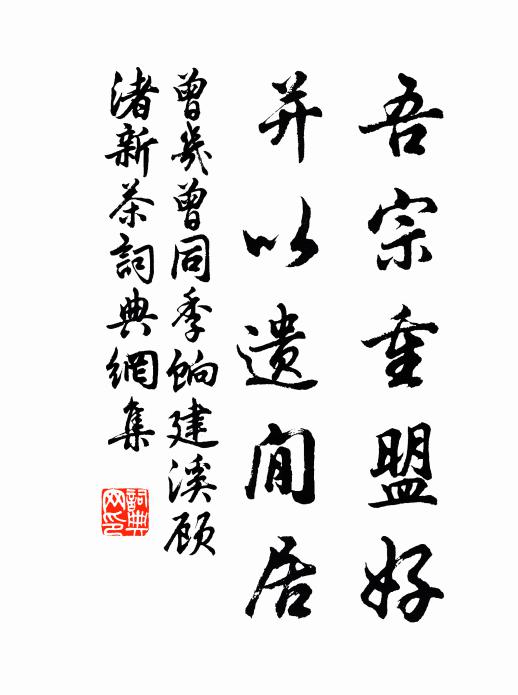 吾宗重盟好
并以遗閒居
曾幾曾同季餉建溪顾
渚新茶詞典網集
詞典网印